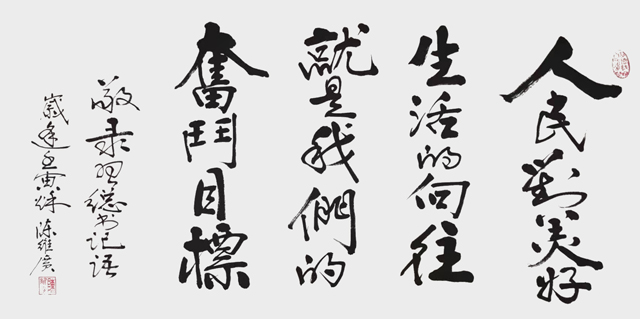 人民對美好
生活的向往
就是我們的
奮鬥目標
敬录习总书记语
歲逢壬寅秋陈維廣